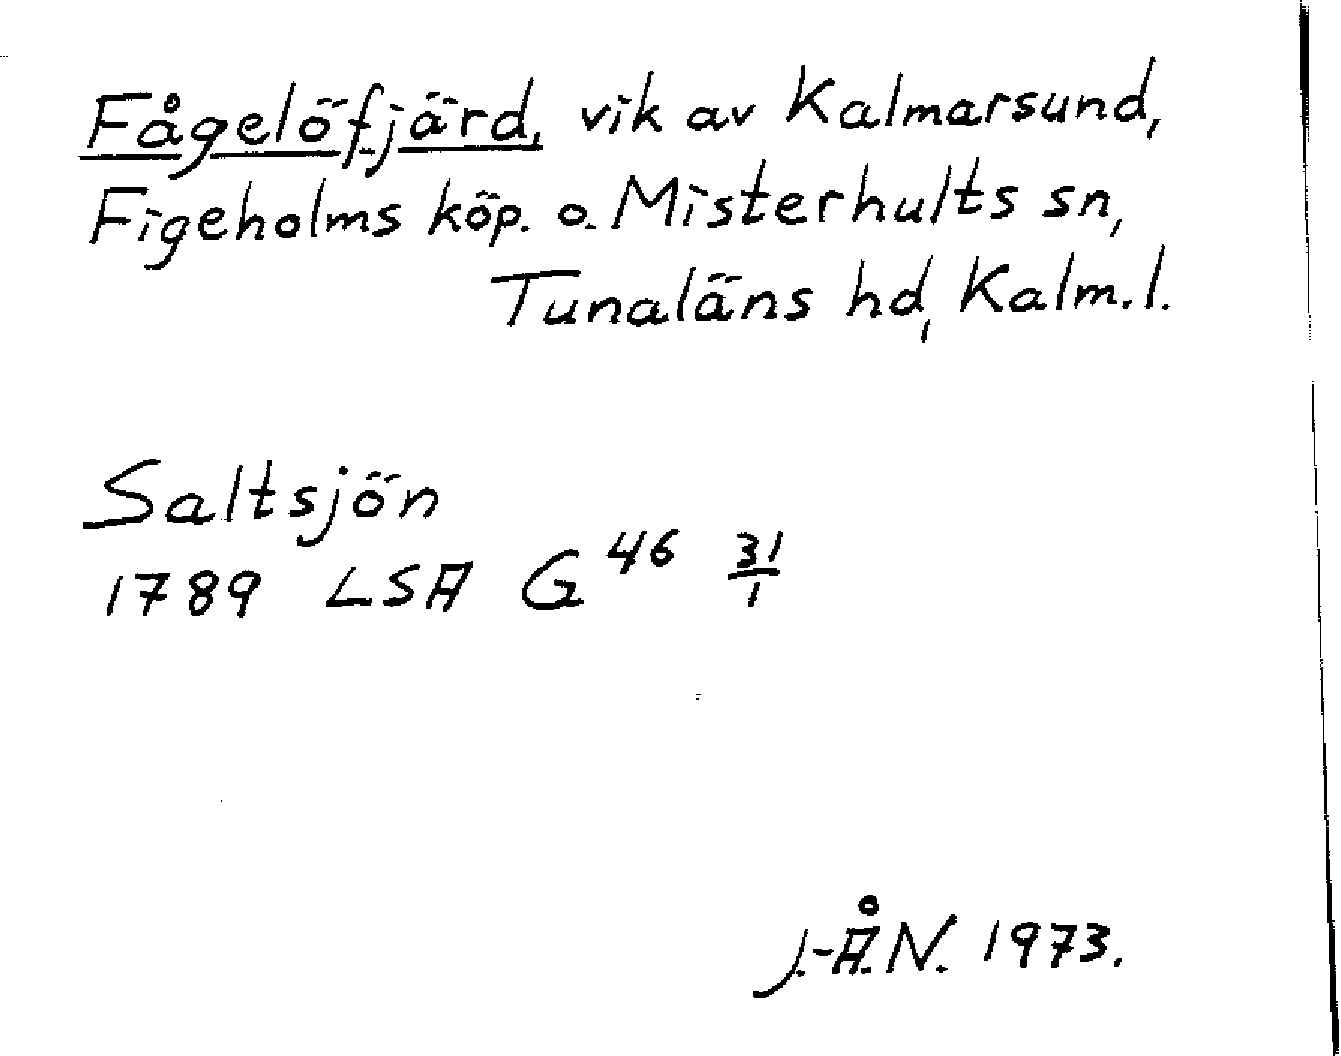 Fågelöfjärd, vik av Kalmarsund,
Figeholms köp. o. Misterhults sn,
Tunaläns hd, Kalm. l.
Saltsjön
1789 LSA G 46 31/1
J.-Å.N. 1973.